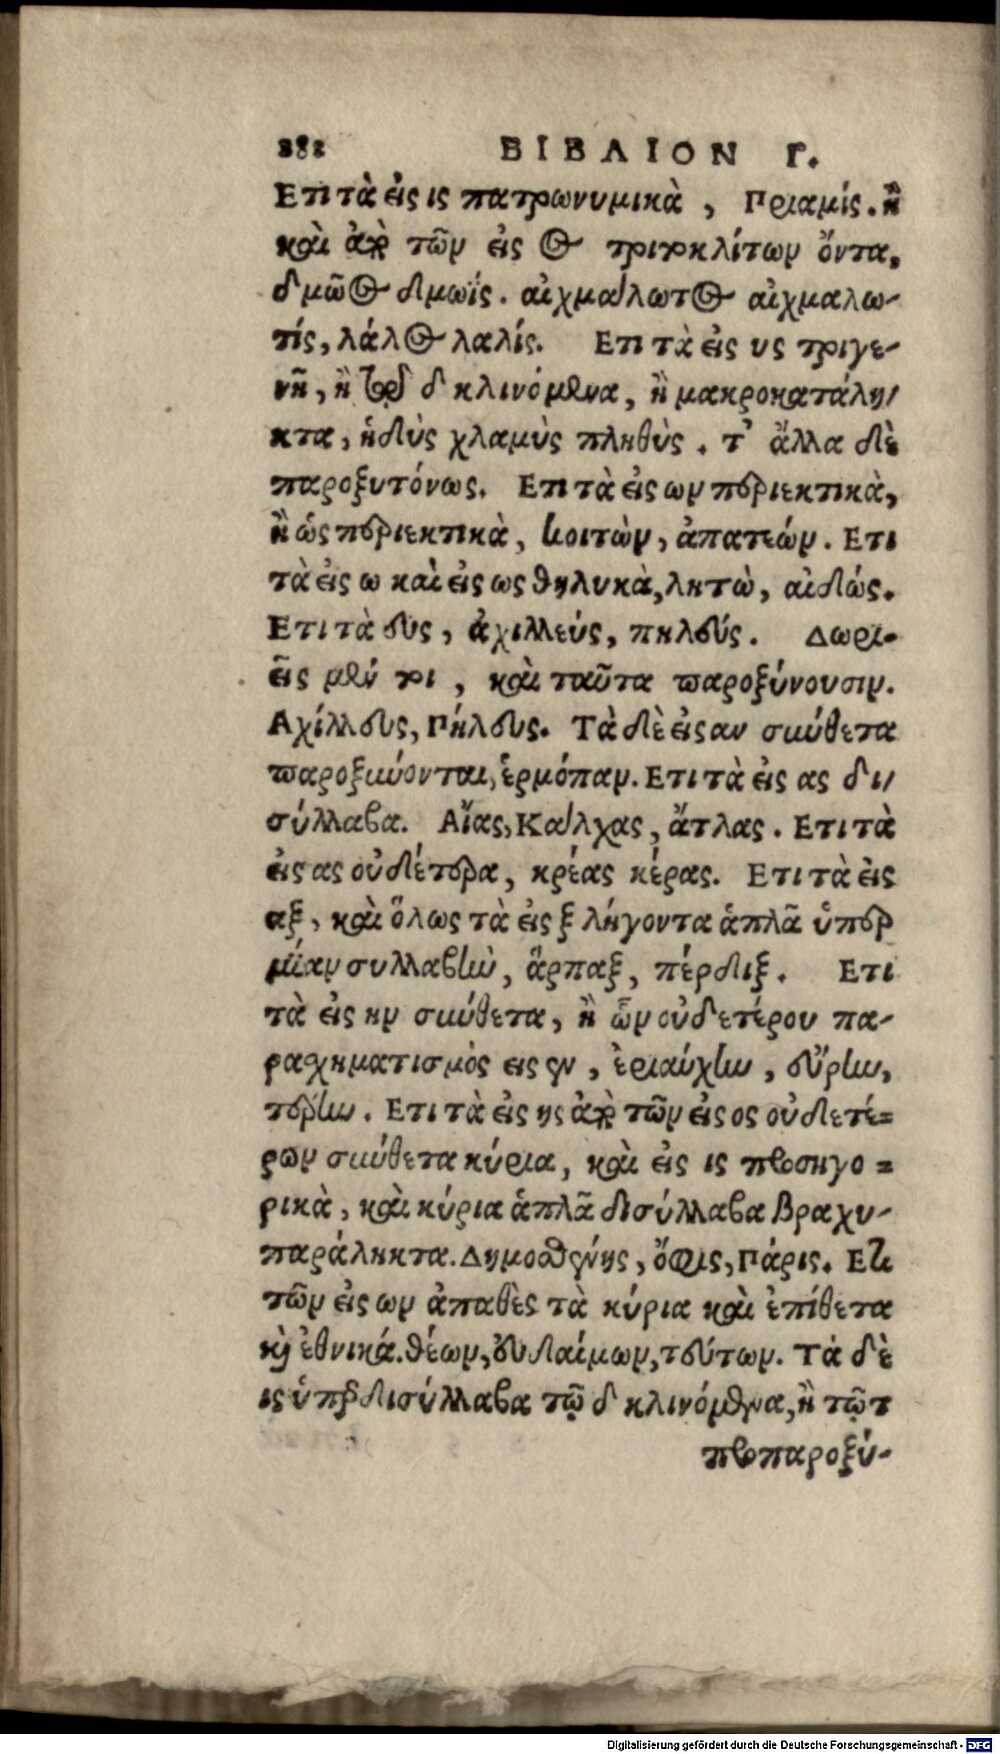 282 ΒΙΒΛΙΟΝ Γ.
Ετι τὰ εἰς ις πατρωνυμικὰ, Πριαμίς. ἢ
καὶ ἀπὸ τῶν εἰς ος τριγκλίτων ὄντα,
δμῶος δμωίς. αἰχμάλωτος αἰχμαλω-
τίς, λάλος λαλίς. Ετι τὰ εἰς υς τριγε-
νῆ, ἢ διὰ τοῦ δ κλινόμενα, ἢ μακροκατάλη/
κτα, ἡδὺς χλαμὺς πληθὺς. τ' ἄλλα δὲ
παροξυτόνως. Ετι τὰ εἰς ων περιεκτικὰ,
ἢ ὡς περιεκτικὰ, κοιτὼν, ἀπατεών. Ετι
τὰ εἰς ω καὶ εἰς ως θηλυκὰ, λητὼ, αἰδώς.
Ετι τὰ ευς, ἀχιλλεύς, πηλεύς. Δωρι-
εῖς μέν τοι, καὶ ταῦτα παροξύνουσιν.
Αχίλλευς, Πήλευς. Τὰ δὲ εἰς αν σύνθετα
παροξύνονται, ἑρμόπαν. Ετι τὰ εἰς ας δι/
σύλλαβα. Αἴας, Κάλχας, ἄτλας. Ετι τὰ
εἰς ας οὐδέτερα, κρέας κέρας. Ετι τὰ εἰς
αξ, καὶ ὅλως τὰ εἰς ξ λήγοντα ἁπλᾶ ὑπὲρ
μίαν συλλαβὴν, ἅρπαξ, πέρδιξ. Ετι
τὰ εἰς ην σύνθετα, ἢ ὧν οὐδετέρου πα-
ραχηματισμὸς εις εν, ἐριαύχην, εὔρην,
τέρην. Ετι τὰ εἰς ης ἀπὸ τῶν εἰς ος οὐδετέ=
ρων σύνθετα κύρια, καὶ εἰς ις προσηγο=
ρικὰ, καὶ κύρια ἁπλᾶ δισύλλαβα βραχυ-
παράληκτα. Δημοσθένης, ὄφις, Πάρις. Ετι
τῶν εἰς ων ἀπαθὲς τὰ κύρια καὶ ἐπίθετα
καὶ ἐθνικά. θέων, εὐδαίμων, τεύτων. Τὰ δὲ
ις ὑπὲρ δισύλλαβα τῷ δ κλινόμενα, ἢ τῷ τ
προπαροξύ-